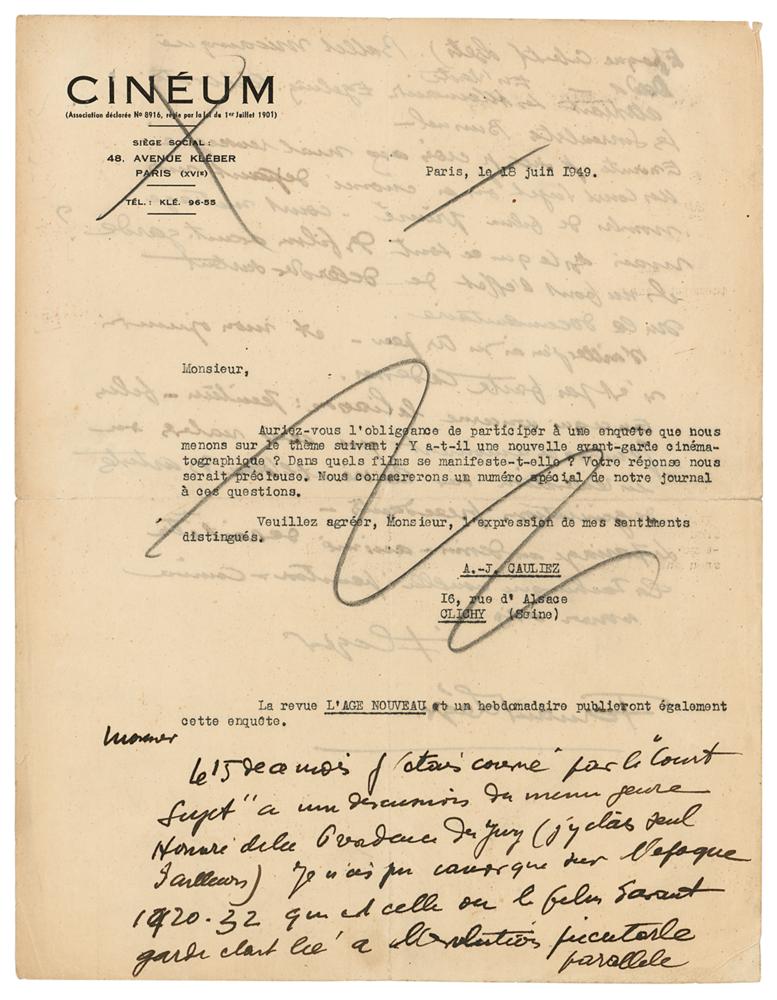 CINÉUM
(Association déclarée No 8916, régie par la loi du 1er Juillet 1901)
SIÈGE SOCIAL :
48, AVENUE KLÉBER
PARIS (XVIe)
TÉL. : KLÉ. 96-55
Paris, le 18 juin 1949.
Monsieur,
Auriez-vous l'obligeance de participer à une enquête que nous
menons sur le thème suivant : Y a-t-il une nouvelle avant-garde cinéma-
tographique ? Dans quels films se manifeste-t-elle ? Votre réponse nous
serait précieuse. Nous consacrerons un numéro spécial de notre journal
à ces questions.
Veuillez agréer, Monsieur, l'expression de mes sentiments
distingués.
A.-J. CAULIEZ
16, rue d'Alsace
CLICHY (Seine)
La revue L'AGE NOUVEAU et un hebdomadaire publieront également
cette enquête.
Monsieur
Le 15 de ce mois j'étais par le "Court
Sujet" a une discussion du meme genre
de la du Jury (j'y étais seul
d'ailleurs) Je n'ai pu que sur l'époque
1920-32 qui est celle ou le film avant
garde etait lié a l'Evolution picturale
parallele